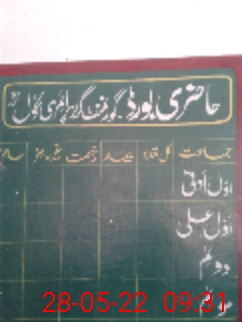 حاضری بورڈ گورنمنٹ گرلز پرائمری سکول
جماعت کل تعداد بیمار رخصت غیر حاضر
اوّل ادنیٰ
اوّل اعلیٰ
دوئم
سوئم
28-05-22 09:31